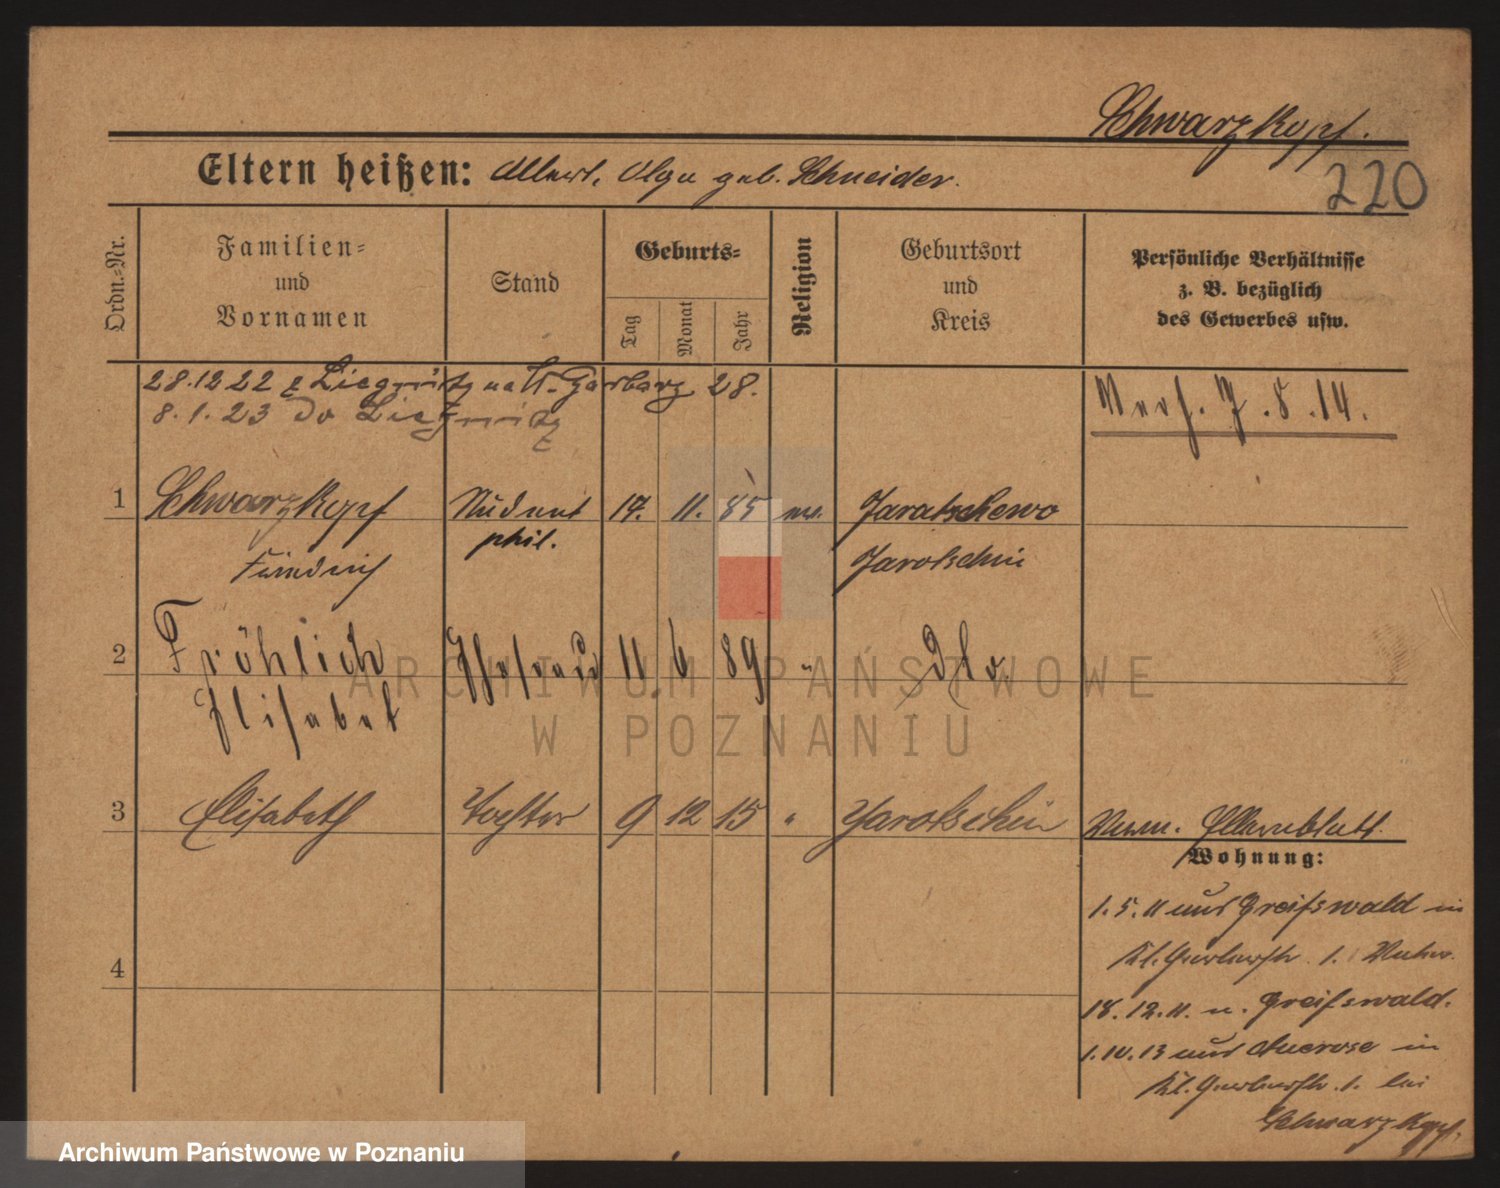 Schwarzkopf.
220
Eltern heißen: Albert, Olga geb. Schneider.
Ordn.-Nr.
Familien-
und
Vornamen
Stand
Geburts-
Tag
Monat
Jahr
Religion
Geburtsort
und
Kreis
Persönliche Verhältnisse
z. B. bezüglich
des Gewerbes usw.
28.12 22 Liegnitz Garbarz 28.
8.1.23 do Liegnitz
Verh. 7.8.14.
1 Schwarzkopf Student 17. 11. 85 Jaratschewo
phil.
Friedrich Jarotschin
2 Fröhlich Ehefrau 11 6 89 " Dto.
Elisabet
3 Elisabeth Tochter 9 12 15 " Jarotschin
Elternblatt.
Wohnung:
1.5.11 aus Greifswald in
Kl. Gerberstr. 1.
18.12.11. n. Greifswald.
1.10.13 aus in
Kl. Gerberstr. 1. bei
Schwarzkopf.
4
ARCHIWUM PAŃSTWOWE
W POZNANIU
Archiwum Państwowe w Poznaniu